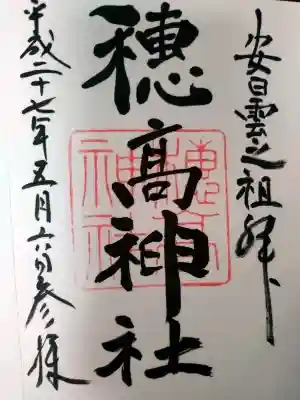 安曇之祖拝
穂髙神社
平成二十七年五月六日参拝
穂高神社